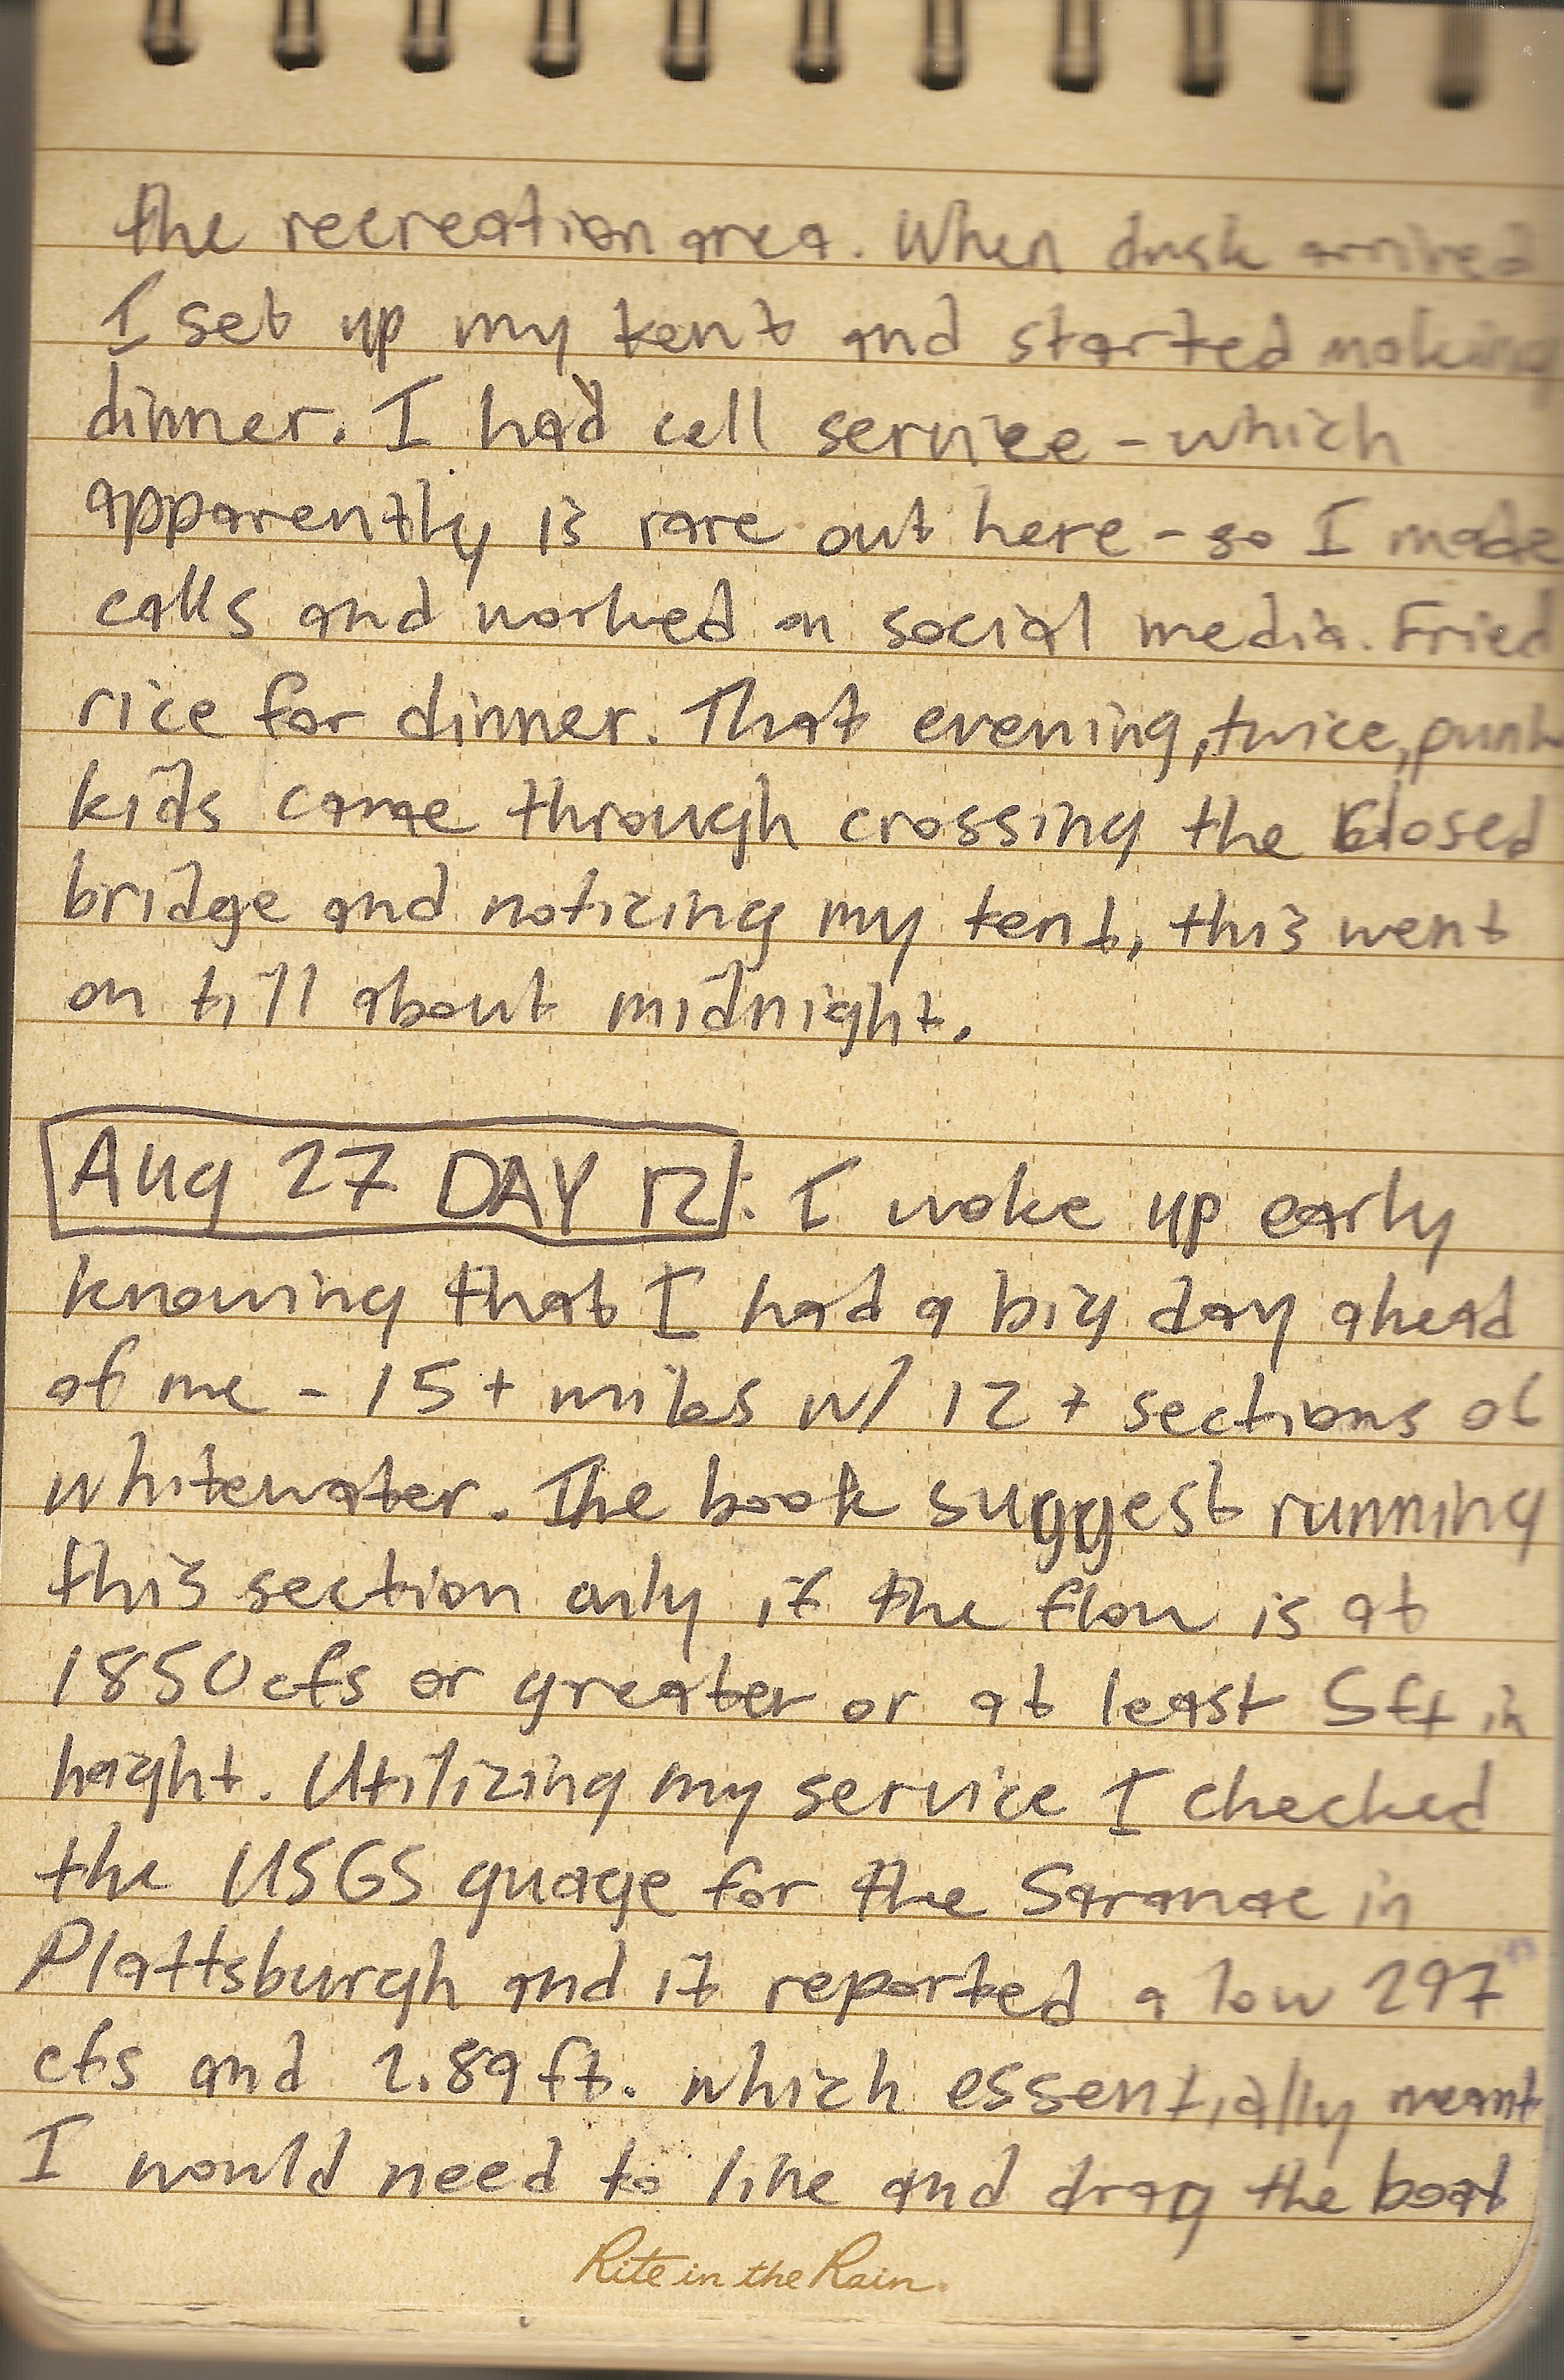 the recreation area. When dusk arrived
I set up my tent and started making
dinner. I had cell service - which
apparently is rare out here - so I made
calls and worked on social media. Fried
rice for dinner. That evening, twice, punk
kids came through crossing the closed
bridge and noticing my tent, this went
on till about midnight.
Aug 27 DAY 12: I woke up early
knowing that I had a big day ahead
of me - 15+ miles w/ 12+ sections of
whitewater. The book suggest running
this section only if the flow is at
1850cfs or greater or at least 5ft in
height. Utilizing my service I checked
the USGS guage for the Saranac in
Plattsburgh and it reported a low 297
cfs and 2.89ft. which essentially meant
I would need to line and drag the boat
Rite in the Rain.